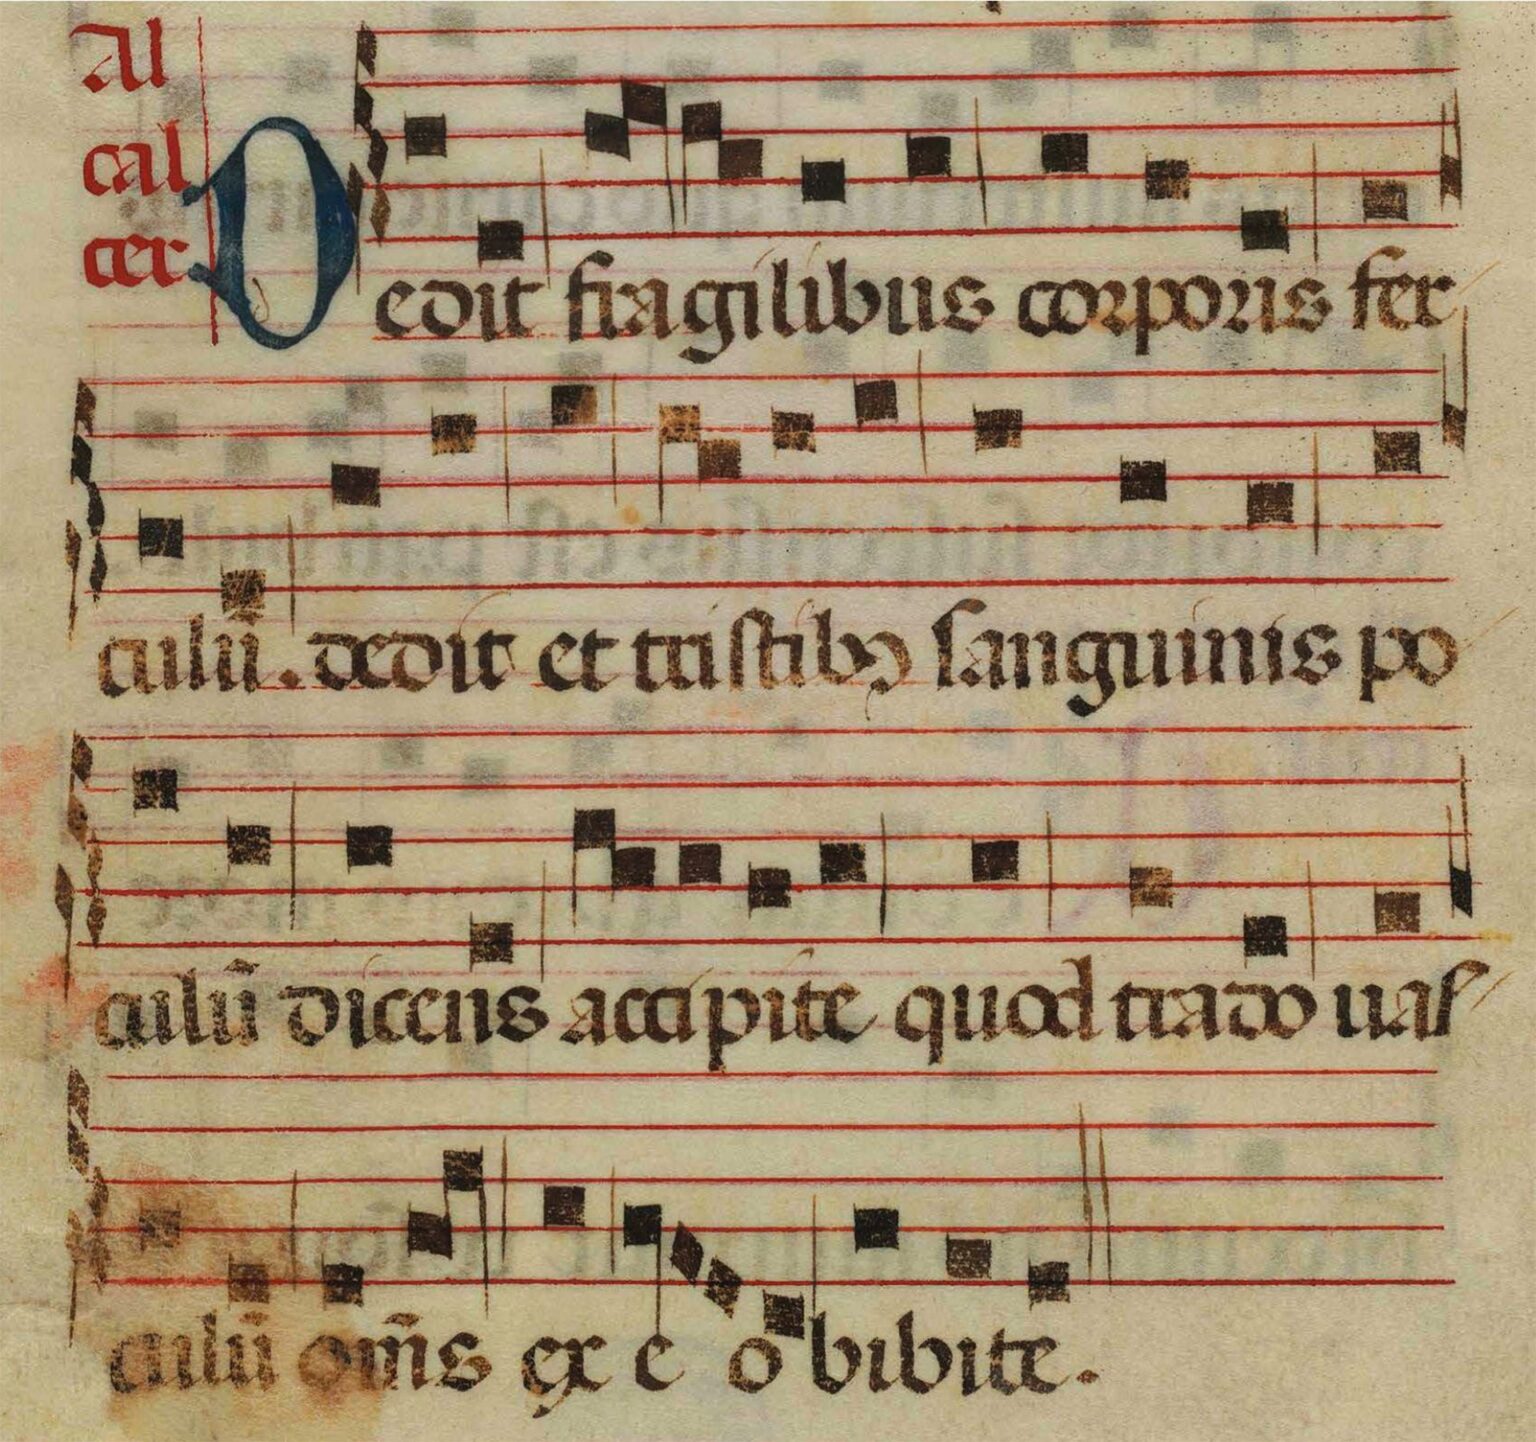 Al
cal
cer
Dedit fragilibus corporis fer
culū. dedit et tristibꝰ sanguinis po
culū dicens accipite quod trado uas
culū om̄s ex e o bibite.